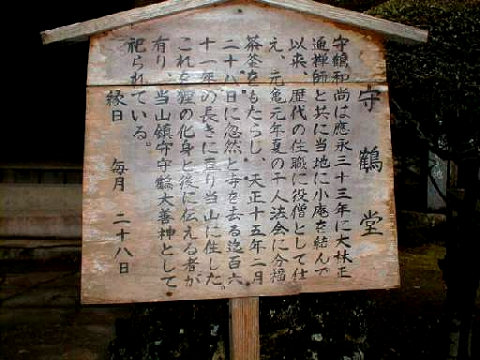 守鶴堂
守鶴和尚は應永三十三年に大林正
通禅師と共に当地に小庵を結んで
以来、歴代の住職に役僧として仕
え、元亀元年夏の千人法会に分福
茶釜をもたらし、天正十五年二月
二十八日に忽然と寺を去る迄百六
十一年の長きに亘り当山に住した。
これを狸の化身と後に伝える者が
有り、当山鎮守守鶴大善神として
祀られている。
縁日　毎月　二十八日